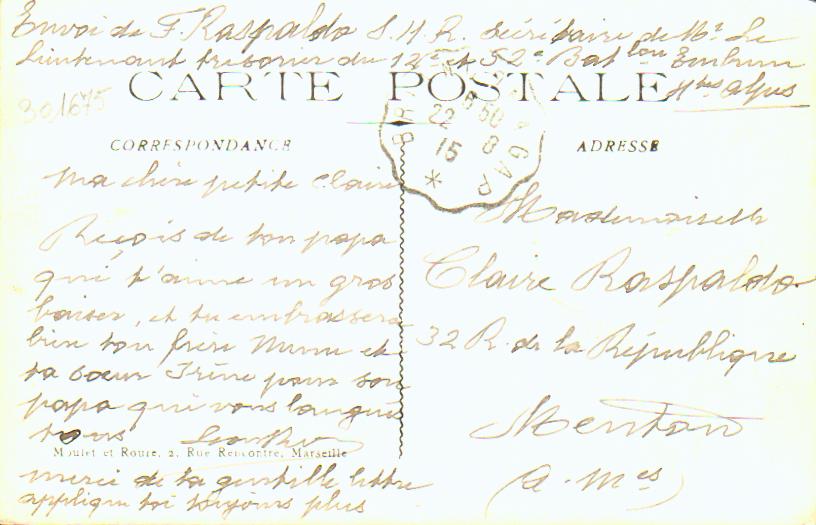 Envoi de F Raspaldo S.H.R. Secrétaire de Mr Le
Lieutenant trésorier du 12e et 52e Bat lon Embrun
Htes Alpes
CARTE POSTALE
301675
CORRESPONDANCE
ADRESSE
BRI GAP
22 8
15
*
Ma chère petite Claire
Reçois de ton papa
qui t'aime un gros
baiser, et tu embrassera
bien ton frère Mimi et
ta soeur Irène pour son
papa qui vous langui
tous
Moulet et Roure, 2, Rue Rencontre, Marseille
merci de ta gentille lettre
applique toi toujours plus
Mademoiselle
Claire Raspaldo
32 R. de la République
Menton
(A-Mes)